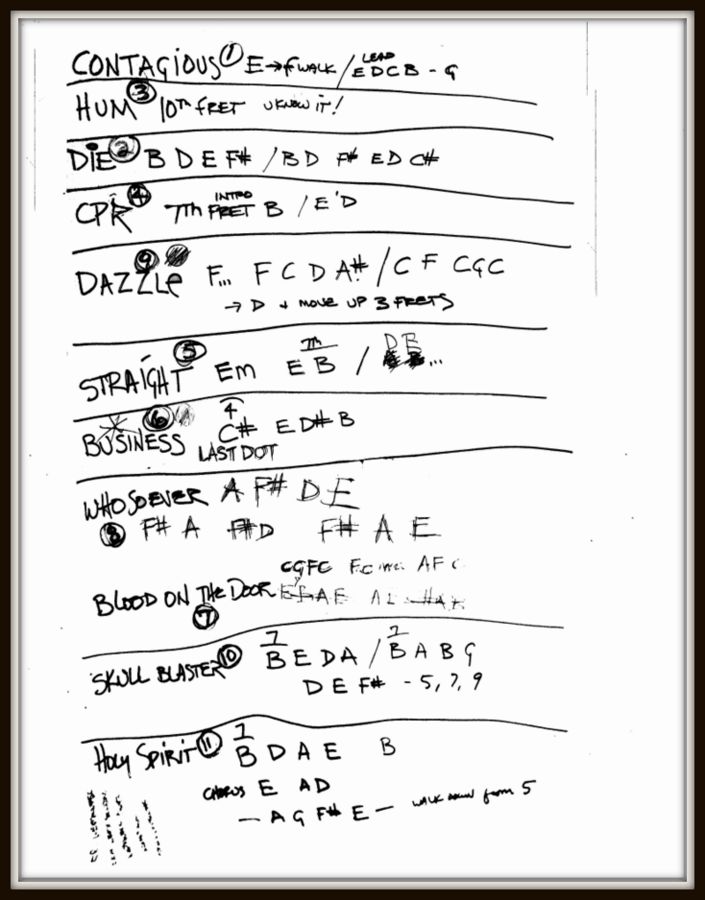 CONTAGIOUS ① E→F WALK / LEAD EDCB - G
HUM ③ 10TH FRET U KNOW IT!
DIE ② B D E F# / B D F# E D C#
CPR ④ 7TH FRET INTRO B / E'D
DAZZLE ⑨ F... F C D A# / C F C G C
→ D + MOVE UP 3 FRETS
STRAIGHT ⑤ Em 7th E B / D B ...
BUSINESS ⑥ 4 C# E D# B
LAST DOT
WHOSOEVER A F# D E
⑧ F# A F#D F# A E
CGFC
BLOOD ON THE DOOR ⑦
SKULL BLASTER ⑩ 7 B E D A / 7 B A B G
D E F# - 5, 7, 9
HOLY SPIRIT ⑪ 7 B D A E B
CHORUS E A D
— A G F# E — WALK DOWN from 5